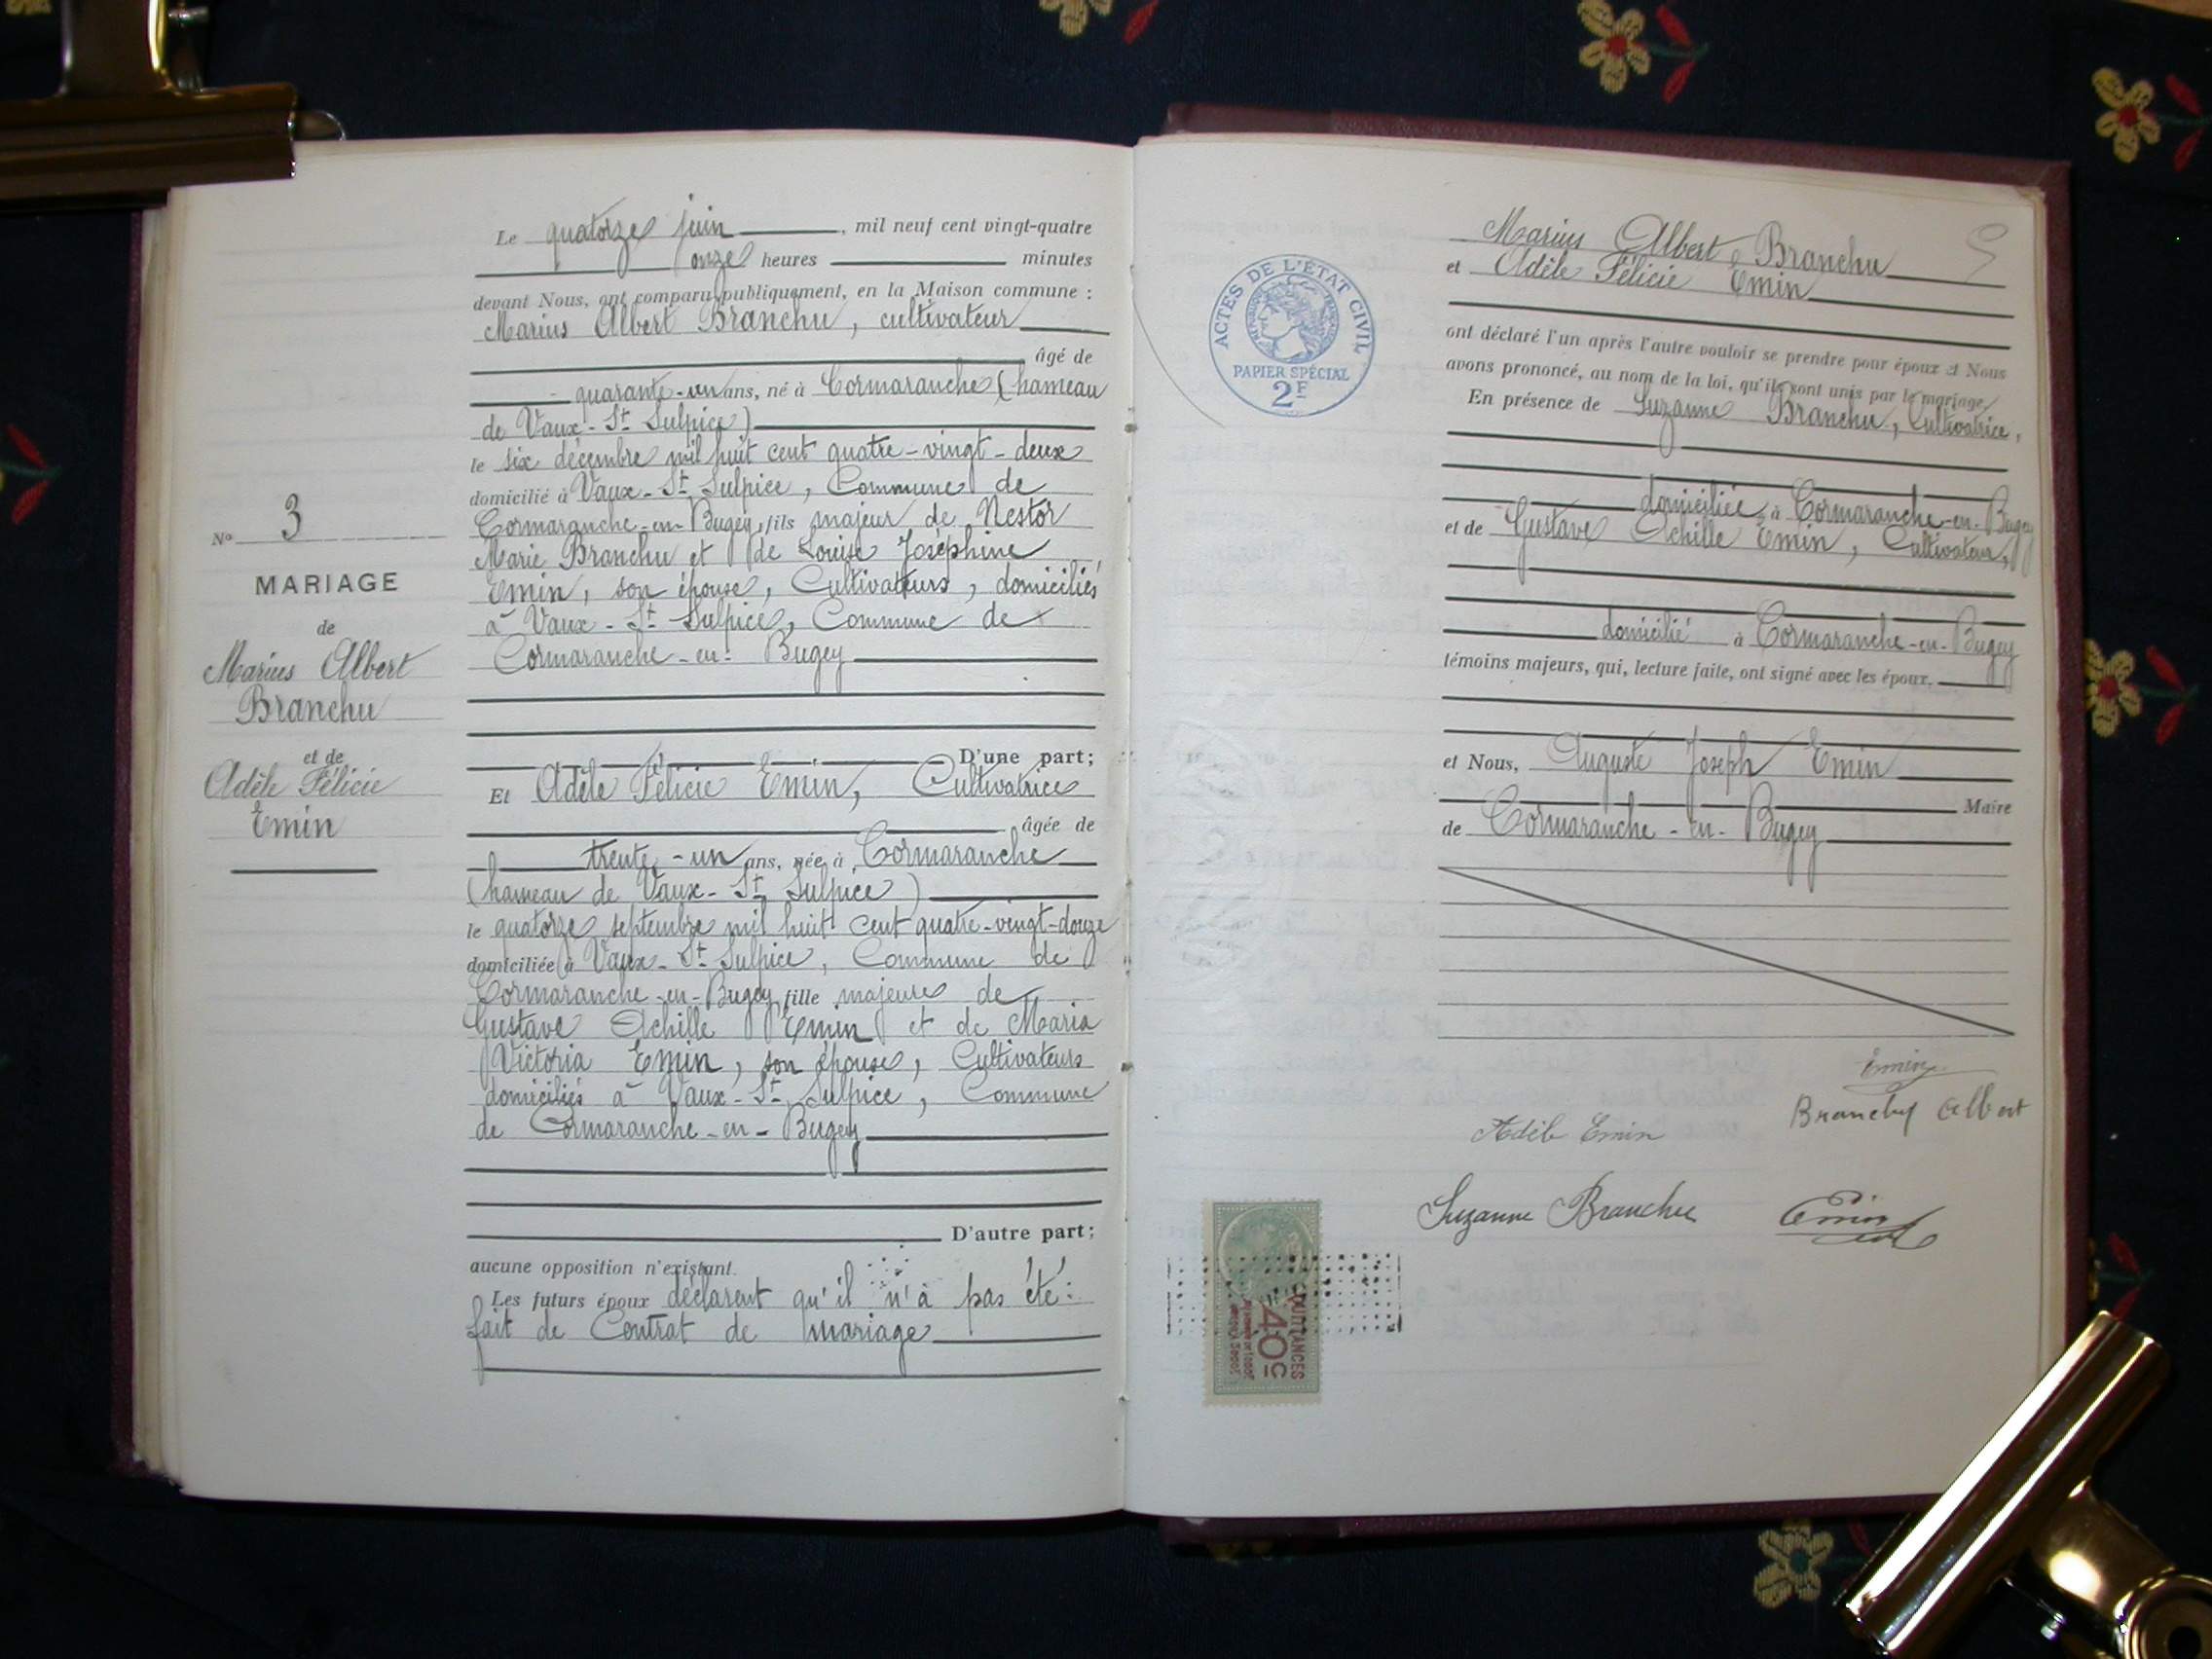 Le quatorze juin, mil neuf cent vingt-quatre
onze heures minutes
devant Nous, ont comparu publiquement, en la Maison commune :
Marius Albert Branchu, cultivateur
âgé de
quarante-un ans, né à Cormaranche (hameau
de Vaux-St Sulpice)
le six décembre mil huit cent quatre-vingt-deux
domicilié à Vaux-St Sulpice, Commune de
Cormaranche-en-Bugey, fils majeur de Nestor
Marie Branchu et de Louise Joséphine
Emin, son épouse, Cultivateurs, domiciliés
à Vaux-St Sulpice, Commune de
Cormaranche-en-Bugey
D'une part;
Et Adèle Félicie Emin, Cultivatrice
âgée de
trente-un ans, née à Cormaranche
(hameau de Vaux-St Sulpice)
le quatorze septembre mil huit cent quatre-vingt-douze
domiciliée à Vaux-St Sulpice, Commune de
Cormaranche-en-Bugey fille majeure de
Gustave Achille Emin et de Maria
Victoria Emin, son épouse, Cultivateurs
domiciliés à Vaux-St Sulpice, Commune
de Cormaranche-en-Bugey
D'autre part;
aucune opposition n'existant.
Les futurs époux déclarent qu'il n'à pas été
fait de Contrat de mariage
No 3
MARIAGE
de
Marius Albert
Branchu
et de
Adèle Félicie
Emin
ACTES DE L'ÉTAT CIVIL
PAPIER SPÉCIAL
2F
Marius Albert Branchu
et Adèle Félicie Emin
ont déclaré l'un après l'autre vouloir se prendre pour époux et Nous
avons prononcé, au nom de la loi, qu'ils sont unis par le mariage,
En présence de Suzanne Branchu, Cultivatrice,
domiciliée à Cormaranche-en-Bugey
et de Gustave Achille Emin, Cultivateur,
domicilié à Cormaranche-en-Bugey
témoins majeurs, qui, lecture faite, ont signé avec les époux.
et Nous, Auguste Joseph Emin
Maire
de Cormaranche-en-Bugey
Emin
Branchu Albert
Adèle Emin
Suzanne Branchu
Emin
QUITTANCES
40c